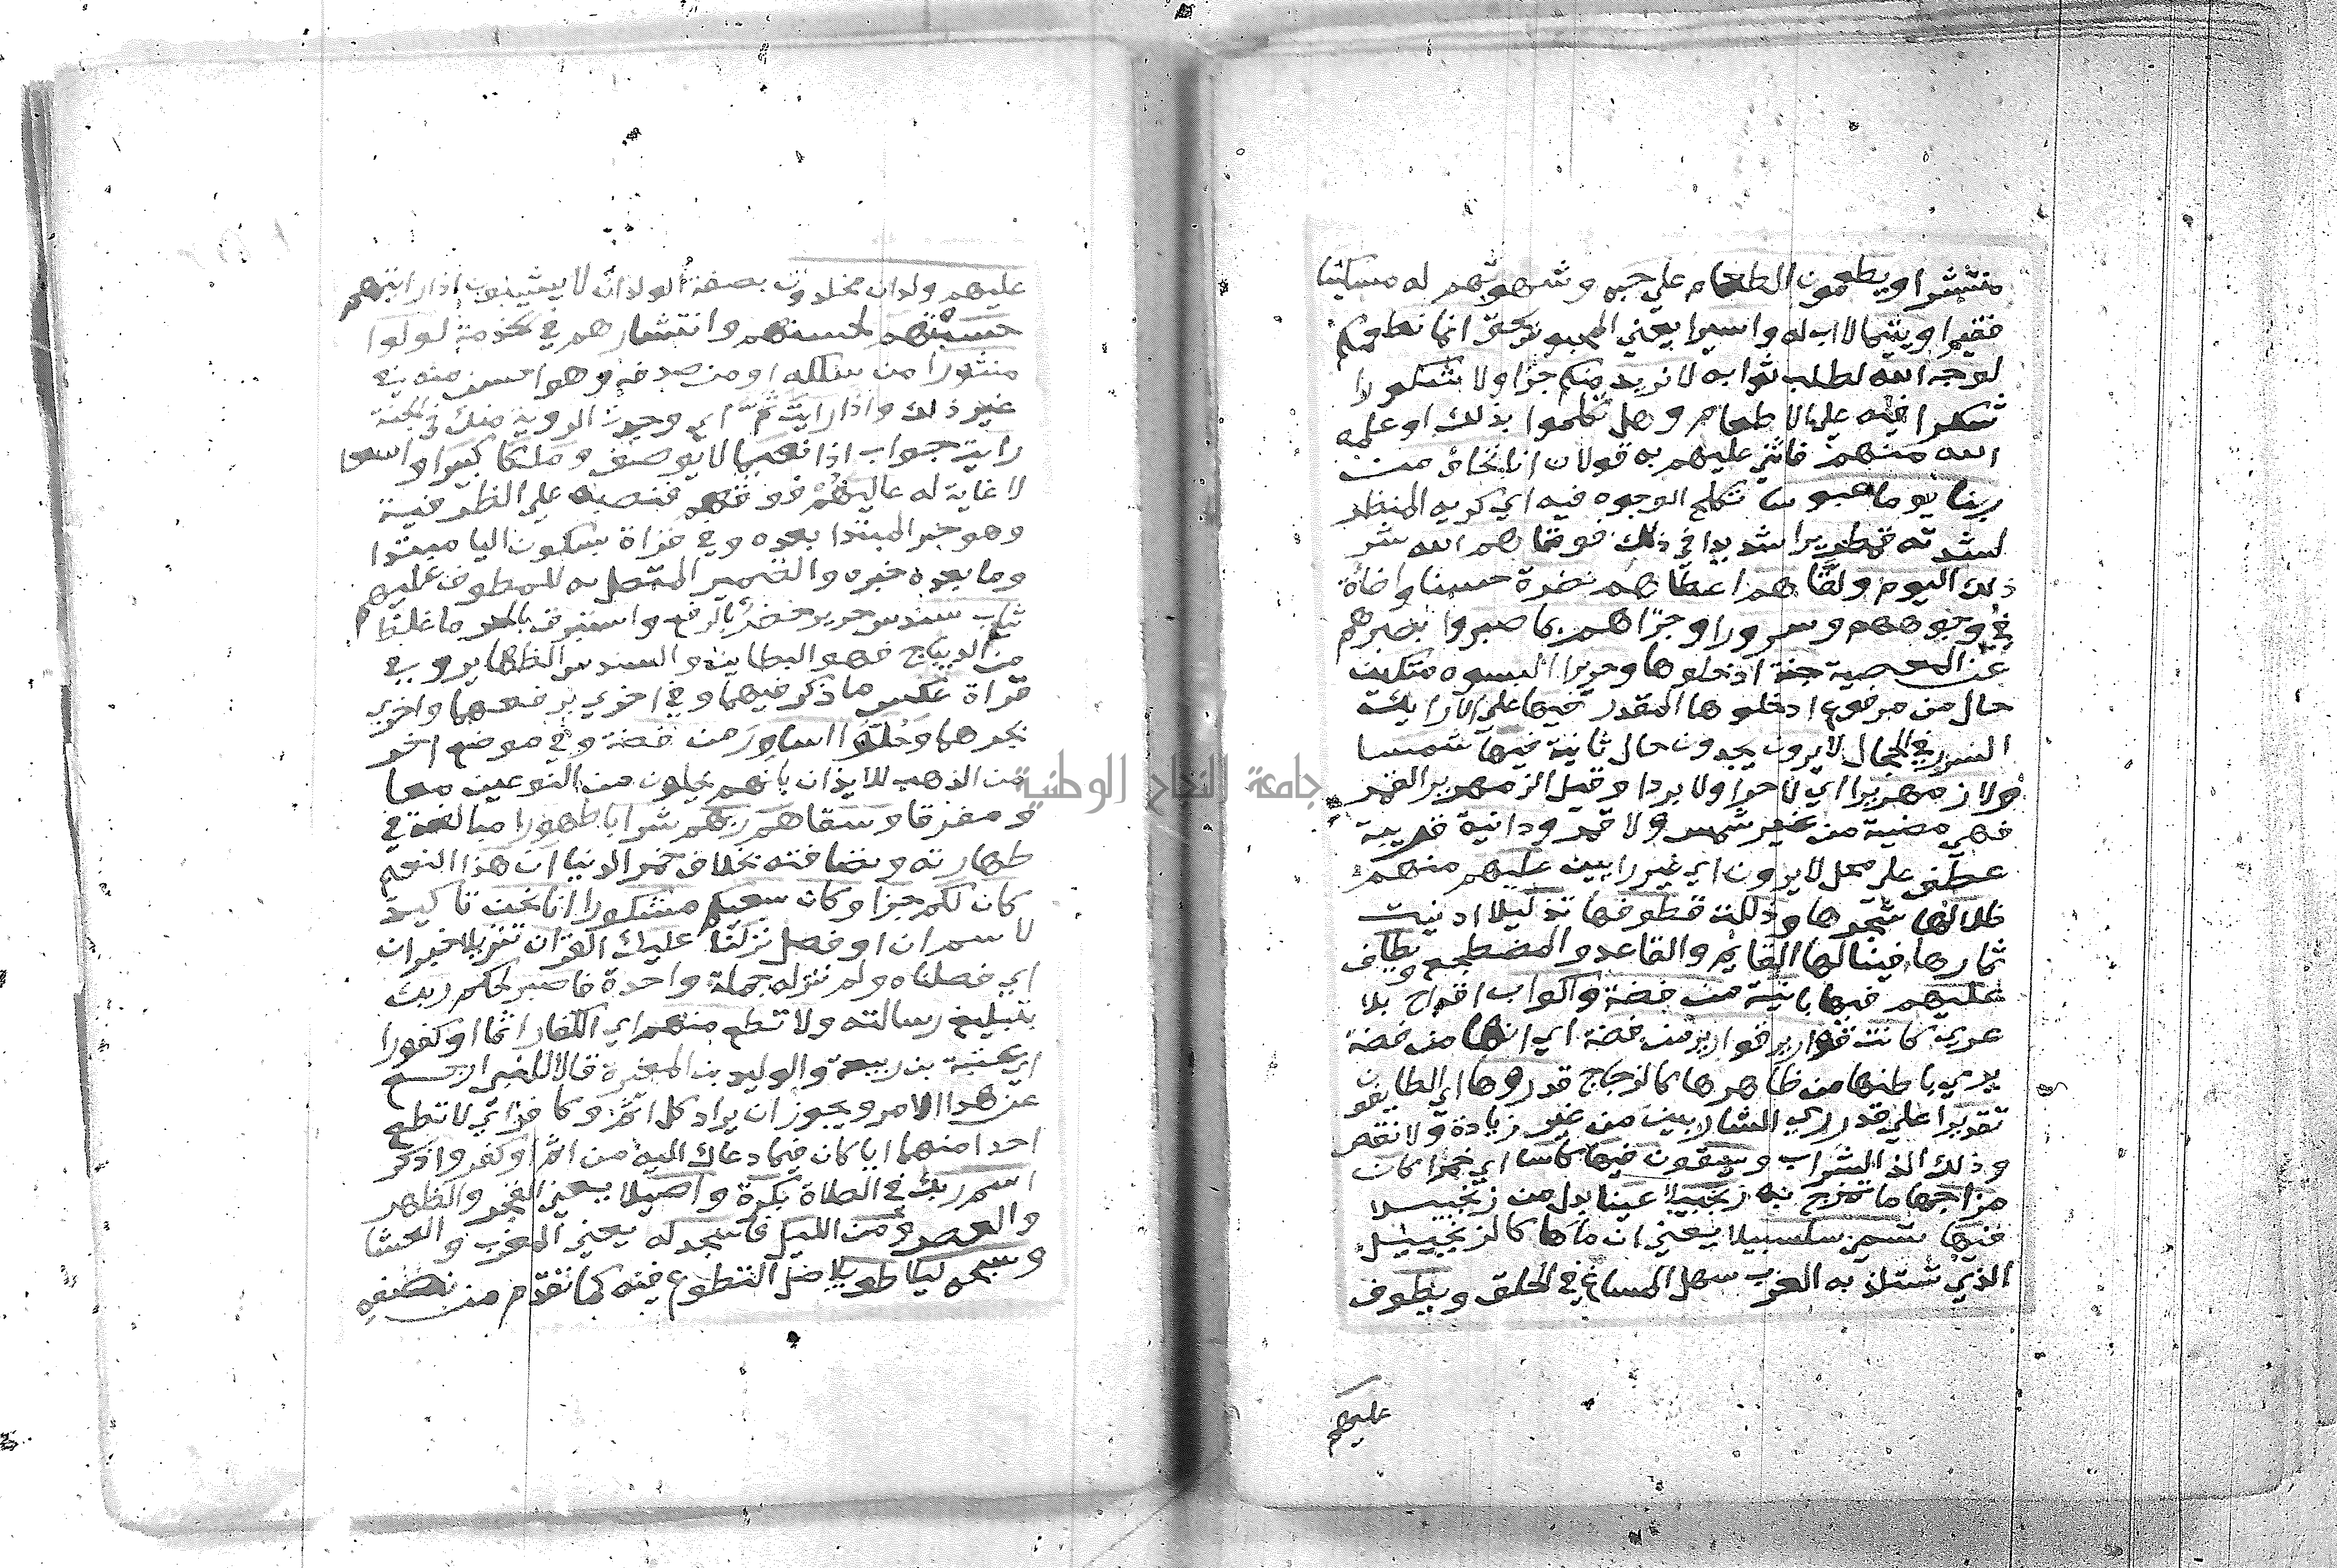 منتشرا ويطعمون الطعام على حبه وشهوتهم له مسكينا
فقيرا ويتيما لا اب له واسيرا يعني المحبوس بحق انما نطعمكم
لوجه الله لطلب ثوابه لا نريد منكم جزا ولا شكورا
شكرا فيه علي الاطعام وهل تكلموا بذلك او علمه
الله منهم فاثني عليهم به قولان انا نخاف من
ربنا يوما عبوسا تكلح الوجوه فيه اي كريه المنظر
لشدته قمطريرا شديدا في ذلك فوقاهم الله شر
ذلك اليوم ولقاهم اعطاهم نضرة حسنا واضاة
في وجوههم وسرورا وجزاهم بما صبروا بصبرهم
عن المعصية جنة ادخلوها وحريرا البسوه متكين
حال من مرفوع ادخلوها المقدر فيها علي الارايك
السرر في الحجال لا يرون يجدون حال ثانية فيها شمسا
ولا زمهريرا اي لا حرا ولا بردا وقيل الزمهرير القمر
فهي مضية من غير شمس ولا قمر ودانية قريبة
عطف علي محل لا يرون اي غير رايين عليهم منهم
ظلالها شجرها وذللت قطوفها تذليلا ادنيت
ثمارها فينالها القايم والقاعد والمضطجع ويطاف
عليهم فيها بانية من فضة واكواب اقداح بلا
عري كانت قوارير قوارير من فضة اي انها من فضة
يري باطنها من ظاهرها كالزجاج قدروها اي الطايفون
تقديرا علي قدر ري الشاربين من غير زيادة ولا نقص
وذلك الذ الشراب ويسقون فيها كاسا اي خمرا كان
مزاجها ما تمزج به زنجبيلا عينا بدل من زنجبيلا
فيها تسمي سلسبيلا يعني ان ماها كالزنجبيل
الذي تستلذ به العرب سهل المساغ في الحلق ويطوف
عليهم
عليهم ولدان مخلدون بصفة الولدان لا يشيبون اذا رايتهم
حسبتهم لحسنهم وانتشارهم في الخدمة لولوا
منثورا من سلكه او من صدفه وهو احسن منه في
غير ذلك واذا رايت ثم اي وجدت الروية منك في الجنة
رايت جواب اذا نعيما لا يوصف وملكا كبيرا واسعا
لا غاية له عاليهم فوقهم فنصبه علي الظرفية
وهو خبر المبتدا بعده وفي قراة بسكون اليا مبتدا
وما بعده خبره والضمير المتصل به للمطوف عليهم
ثياب سندس حرير خضر بالرفع واستبرق بالجر ما غلظ
من الديباج فهو البطاين والسندس الظهاير وفي
قراة عكس ما ذكر فيهما وفي اخري برفعهما واخري
بجرهما وحلوا اساور من فضة وفي موضع اخر
من الذهب للايذان بانهم يحلون من النوعين معا
ومفرقا وسقاهم ربهم شرابا طهورا مبالغة في
طهارته ونظافته بخلاف خمر الدنيا ان هذا النعيم
كان لكم جزا وكان سعيكم مشكورا انا نحن تاكيد
لاسم ان او فصل نزلنا عليك القران تنزيلا خبر ان
اي فصلناه ولم ننزله جملة واحدة فاصبر لحكم ربك
بتبليغ رسالته ولا تطع منهم اي الكفار اثما او كفورا
اي عتبة بن ربيعة والوليد بن المغيرة قالا للنبي ارجع
عن هذا الامر ويجوز ان يراد كل اثم وكافر اي لا تطع
احدا منهما ايا كان فيما دعاك اليه من اثم او كفر واذكر
اسم ربك في الصلاة بكرة واصيلا يعني الفجر والظهر
والعصر ومن الليل فاسجد له يعني المغرب والعشا
وسبحه ليلا طويلا صل التطوع فيه كما تقدم من نصفه
جامعة النجاح الوطنية